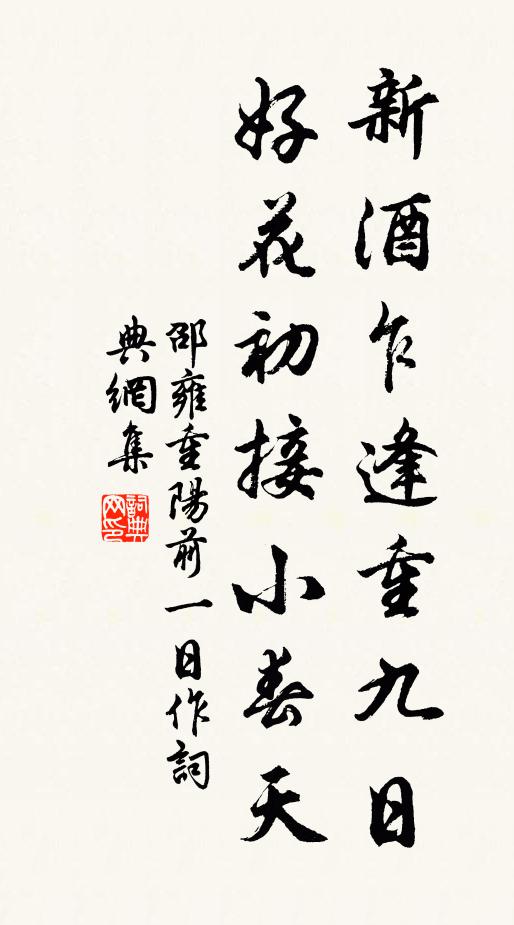 新酒乍逢重九日
好花初接小春天
邵雍重陽前一日作詞
典網集
詞典
网印